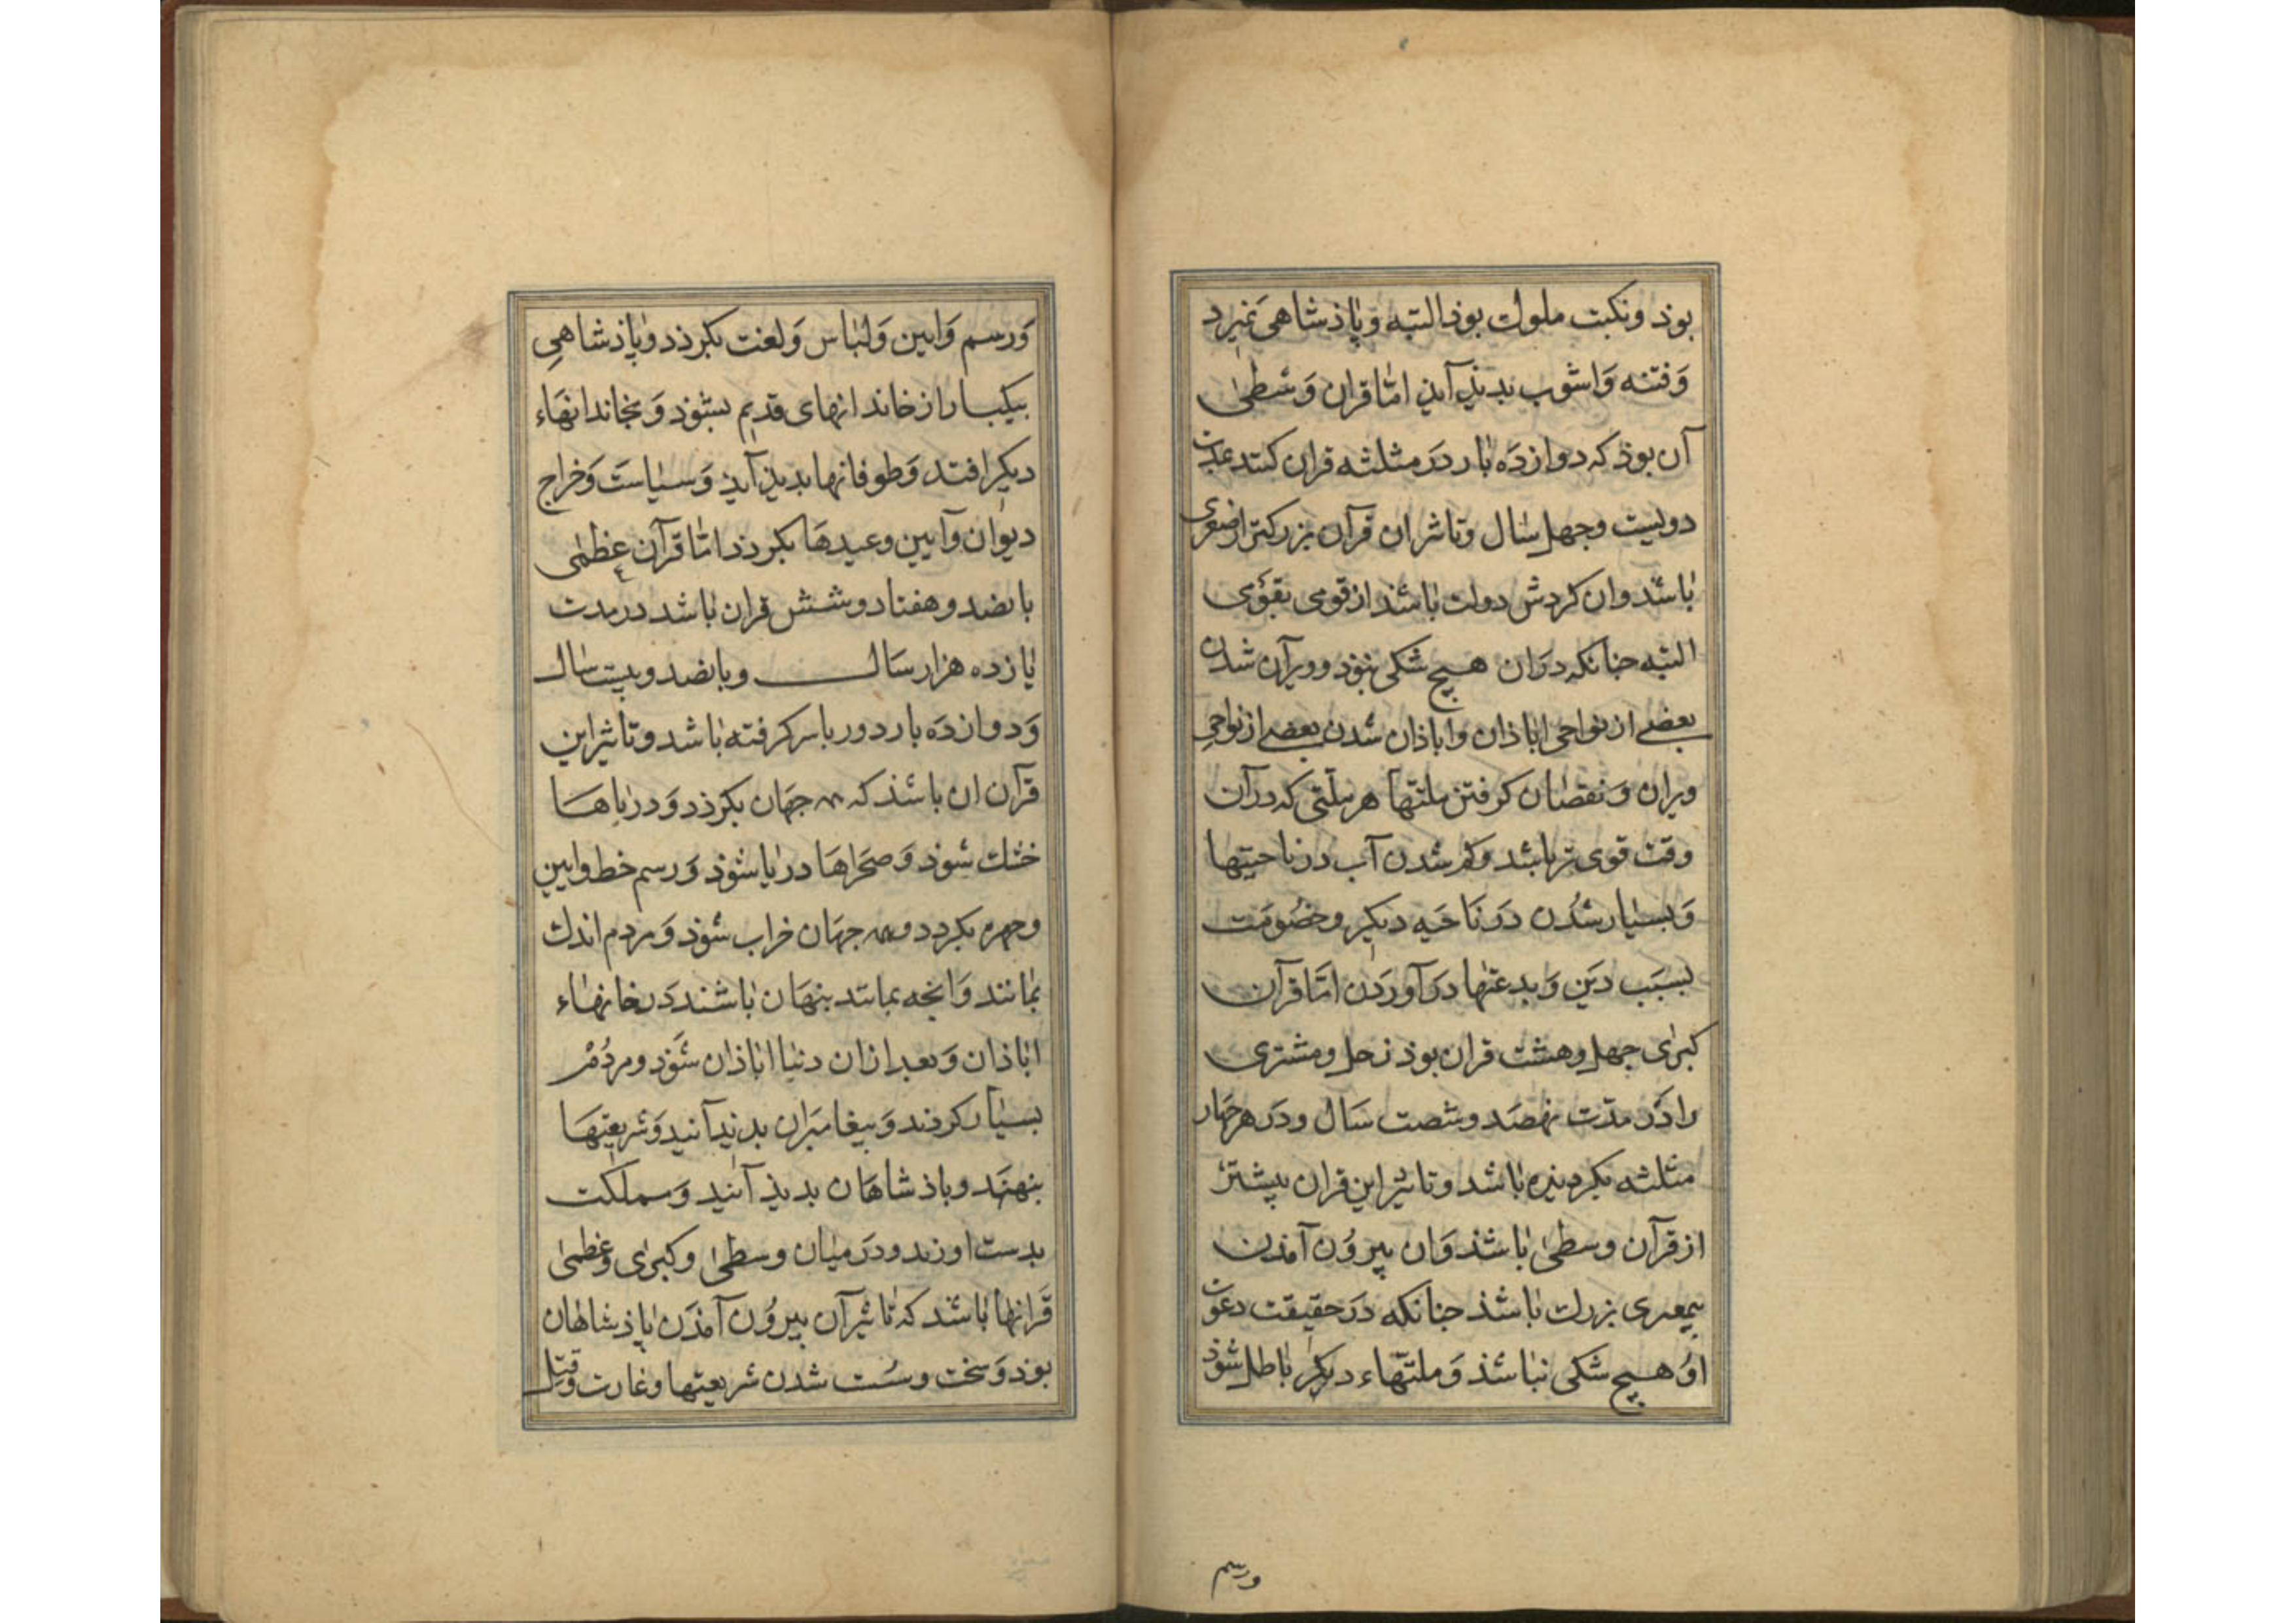 بوذ ونکبت ملوک بوذ البته وپاذشاهی نمیرد
وفتنه واشوب بدیذ آیذ امّا قران وسطی
آن بوذ که دوازده بار در مثلثه قران کنند
دویست وجهل سال وتاثیر ان قرآن بزرکتر از صغری
باشد وان کردش دولت باشذ از قومی بقومی
البته جنانکه دران هیچ شکی نبوذ وویرآن شدن
بعضی از نواحی اباذان واباذان شدن بعضی از نواحی
ویران ونقصان کرفتن ملتها هر ملّتی که در آن
وقت قوی تر باشد وکم شدن آب در ناحیتها
وبسیار شدن در ناحیه دیکر وخصومت
بسبب دین وبدعتها در آوردن امّا قرآن
کبری جهل وهشت قران بوذ زحل ومشتری
را در مدّت نهصد وشصت سال ودر هر جهار
مثلثه بکردیده باشد وتاثیر این قران بیشتر
از قرآن وسطی باشذ وان بیرون آمذن
بزرک باشذ جنانکه در حقیقت دعوت
او هیچ شکی نباشذ وملتّهاء دیکر باطل شوذ
ورسم
ورسم وایین ولباس ولغت بکرذد وپاذشاهی
بیکبار از خاندانهای قدیم بشوذ وبخاندانهاء
دیکر افتد وطوفانها بدیذ آیذ وسیاست وخراج
دیوان وآیین وعیدها بکرذد امّا قرآن عظمی
بانصد وهفتاد وشش قران باشد در مدت
یازده هزار سال وبانصد وبیست سال
ودوازده بار دور باسر کرفته باشد وتاثیر این
قرآن ان باشذ که همه جهان بکرذد ودریاها
خشک شوذ وصحراها دریا شوذ ورسم خط وایین
وجهره بکردد وهمه جهان خراب شوذ ومردم اندک
بمانند وانجه بمانند بنهان باشند در خانهاء
اباذان وبعد ازان دنیا اباذان شوذ ومردم
بسیار کردند وبیغامبران بدیذ آیند وشریعتها
بنهند وباذشاهان بدیذ آیند ومملکت
بدست اورند ودر میان وسطی وکبری وعظمی
قرانها باشد که تاثیر آن بیرون آمذن پاذشاهان
بوذ وسخت وسست شدن شریعتها وغارت وقتل